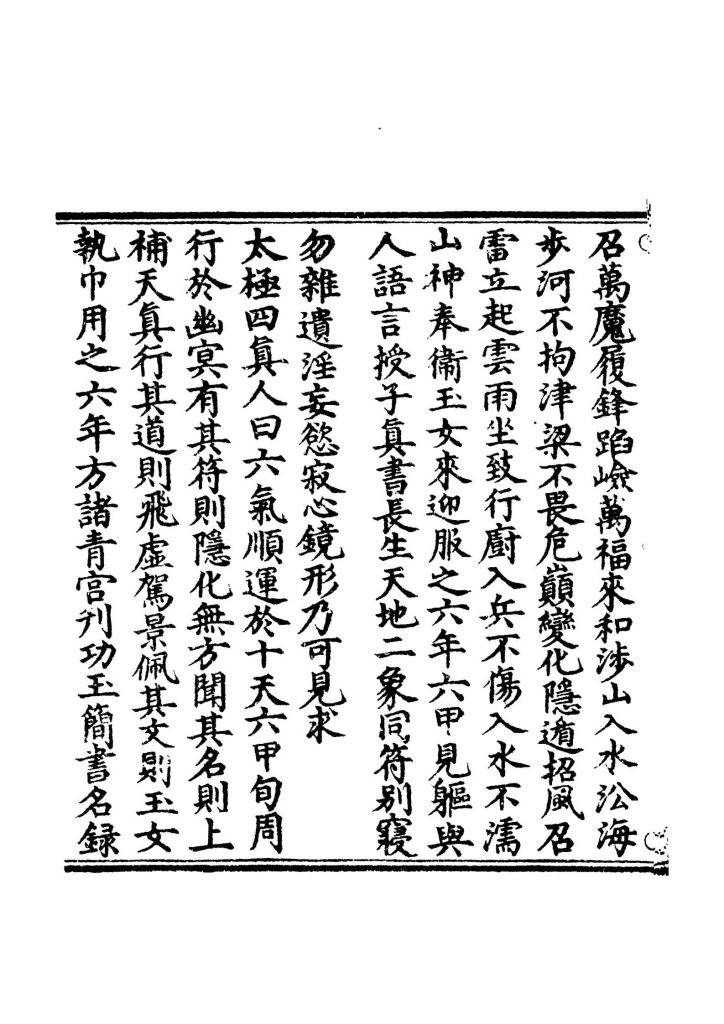 召萬魔履鋒蹈嶮萬福來和涉山入水㳂海
步河不拘津梁不畏危巔變化隱遁招風召
雷立起雲雨坐致行廚入兵不傷入水不濡
山神奉衛玉女來迎服之六年六甲見軀與
人語言授子真書長生天地二象同符別寢
勿雜遺淫妄慾寂心鏡形乃可見求
太極四真人曰六氣順運於十天六甲旬周
行於幽冥有其符則隱化無方聞其名則上
補天真行其道則飛虛駕景佩其文則玉女
執巾用之六年方諸青宮刋功玉簡書名録